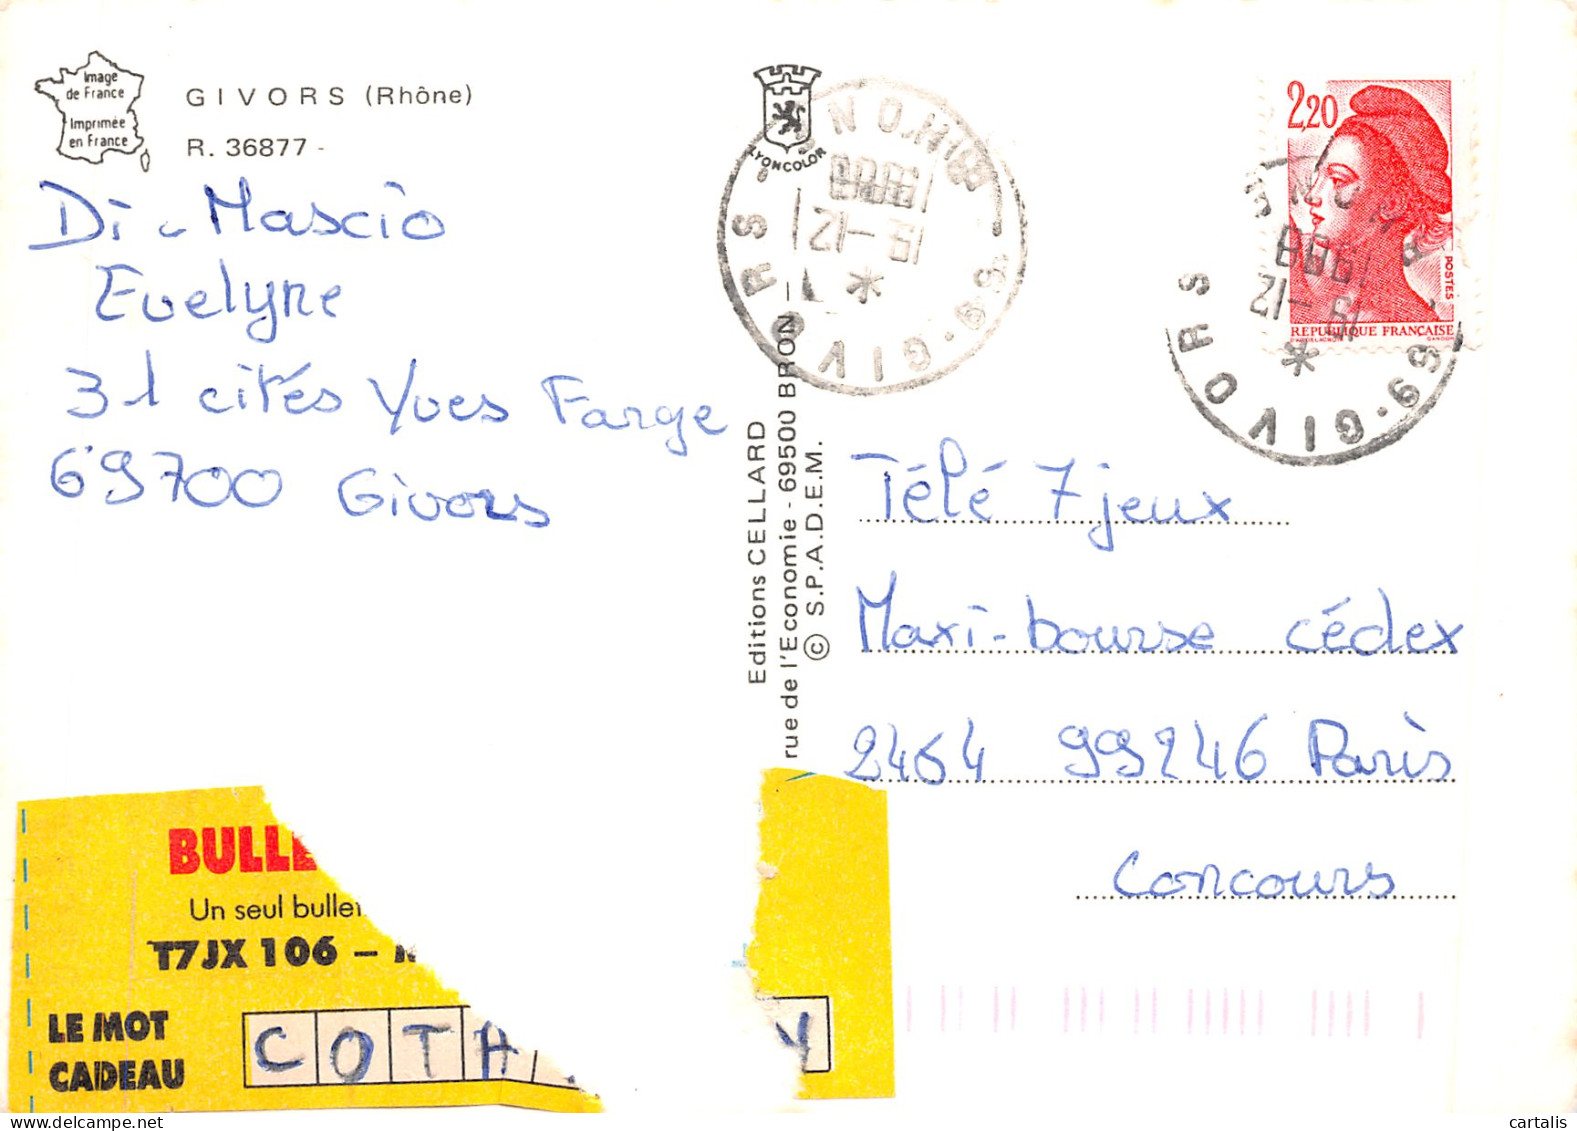 Image
de France
Imprimée
en France
GIVORS (Rhône)
R. 36877 -
Di-Mascio
Evelyne
31 cités Yves Farge
69700 Givors
LYONCOLOR
GIVORS
19-12
1988
Editions CELLARD
rue de l'Economie - 69500 BRON
© S.P.A.D.E.M.
2,20
POSTES
REPUBLIQUE FRANÇAISE
GIVORS
19-12
1988
Télé 7 jeux
Maxi-bourse cédex
2464 99246 Paris
Concours
BULLE
Un seul bullet
T7JX 106 –
LE MOT
CADEAU
COTA
Y
cartalis